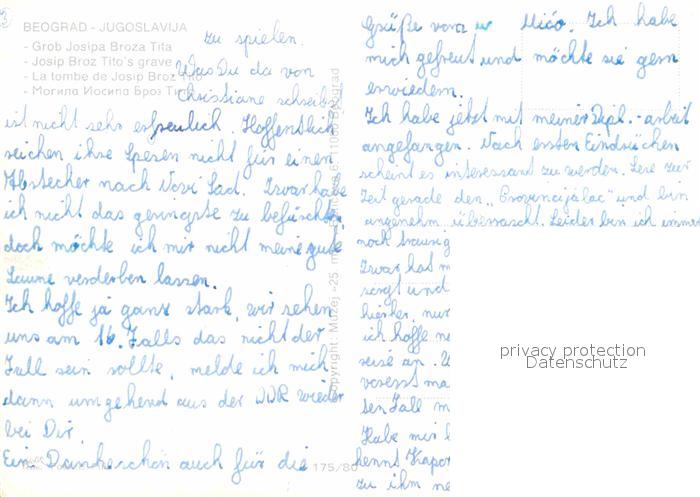 3
BEOGRAD - JUGOSLAVIJA
- Grob Josipa Broza Tita
- Josip Broz Tito's grave
- La tombe de Josip Broz Tito
- Могила Иосипа Броз Тито
zu spielen.
Was Du da von
Christiane schreibst
ist nicht sehr erfreulich. Hoffentlich
reichen ihre Spesen nicht für einen
Abstecher nach Novi Sad. Zwar habe
ich nicht das geringste zu befürchten,
doch möchte ich mir nicht meine gute
Laune verderben lassen.
Ich hoffe ja ganz stark, wir sehen
uns am 16. Falls das nicht der
Fall sein sollte, melde ich mich
dann umgehend aus der DDR wieder
bei Dir.
Ein Dankeschön auch für die
Grüße von Mićo. Ich habe
mich gefreut und möchte sie gern
erwiedern.
Ich habe jetzt mit meiner Dipl.-arbeit
angefangen. Nach ersten Eindrücken
scheint es interessant zu werden. Lese zur
Zeit gerade den „Provincijalac" und bin
angenehm überrascht. Leider bin ich immer
noch traurig
Zwar hat m
sorgt und
hierher, nur
ich hoffe
reise an.
ten Fall m
Habe mir
kennst
zu ihm
copyright Muzej »25 m
11000 Beograd
175/80
privacy protection
Datenschutz